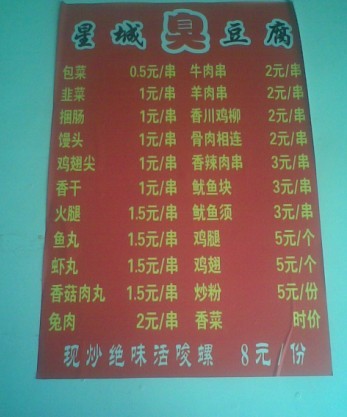 星城臭豆腐
包菜 0.5元/串 牛肉串 2元/串
韭菜 1元/串 羊肉串 2元/串
捆肠 1元/串 香川鸡柳 2元/串
馒头 1元/串 骨肉相连 2元/串
鸡翅尖 1元/串 香辣肉串 3元/串
香干 1元/串 鱿鱼块 3元/串
火腿 1.5元/串 鱿鱼须 3元/串
鱼丸 1.5元/串 鸡腿 5元/个
虾丸 1.5元/串 鸡翅 5元/个
香菇肉丸 1.5元/串 炒粉 5元/份
兔肉 2元/串 香菜 时价
现炒绝味活唆螺 8元/份